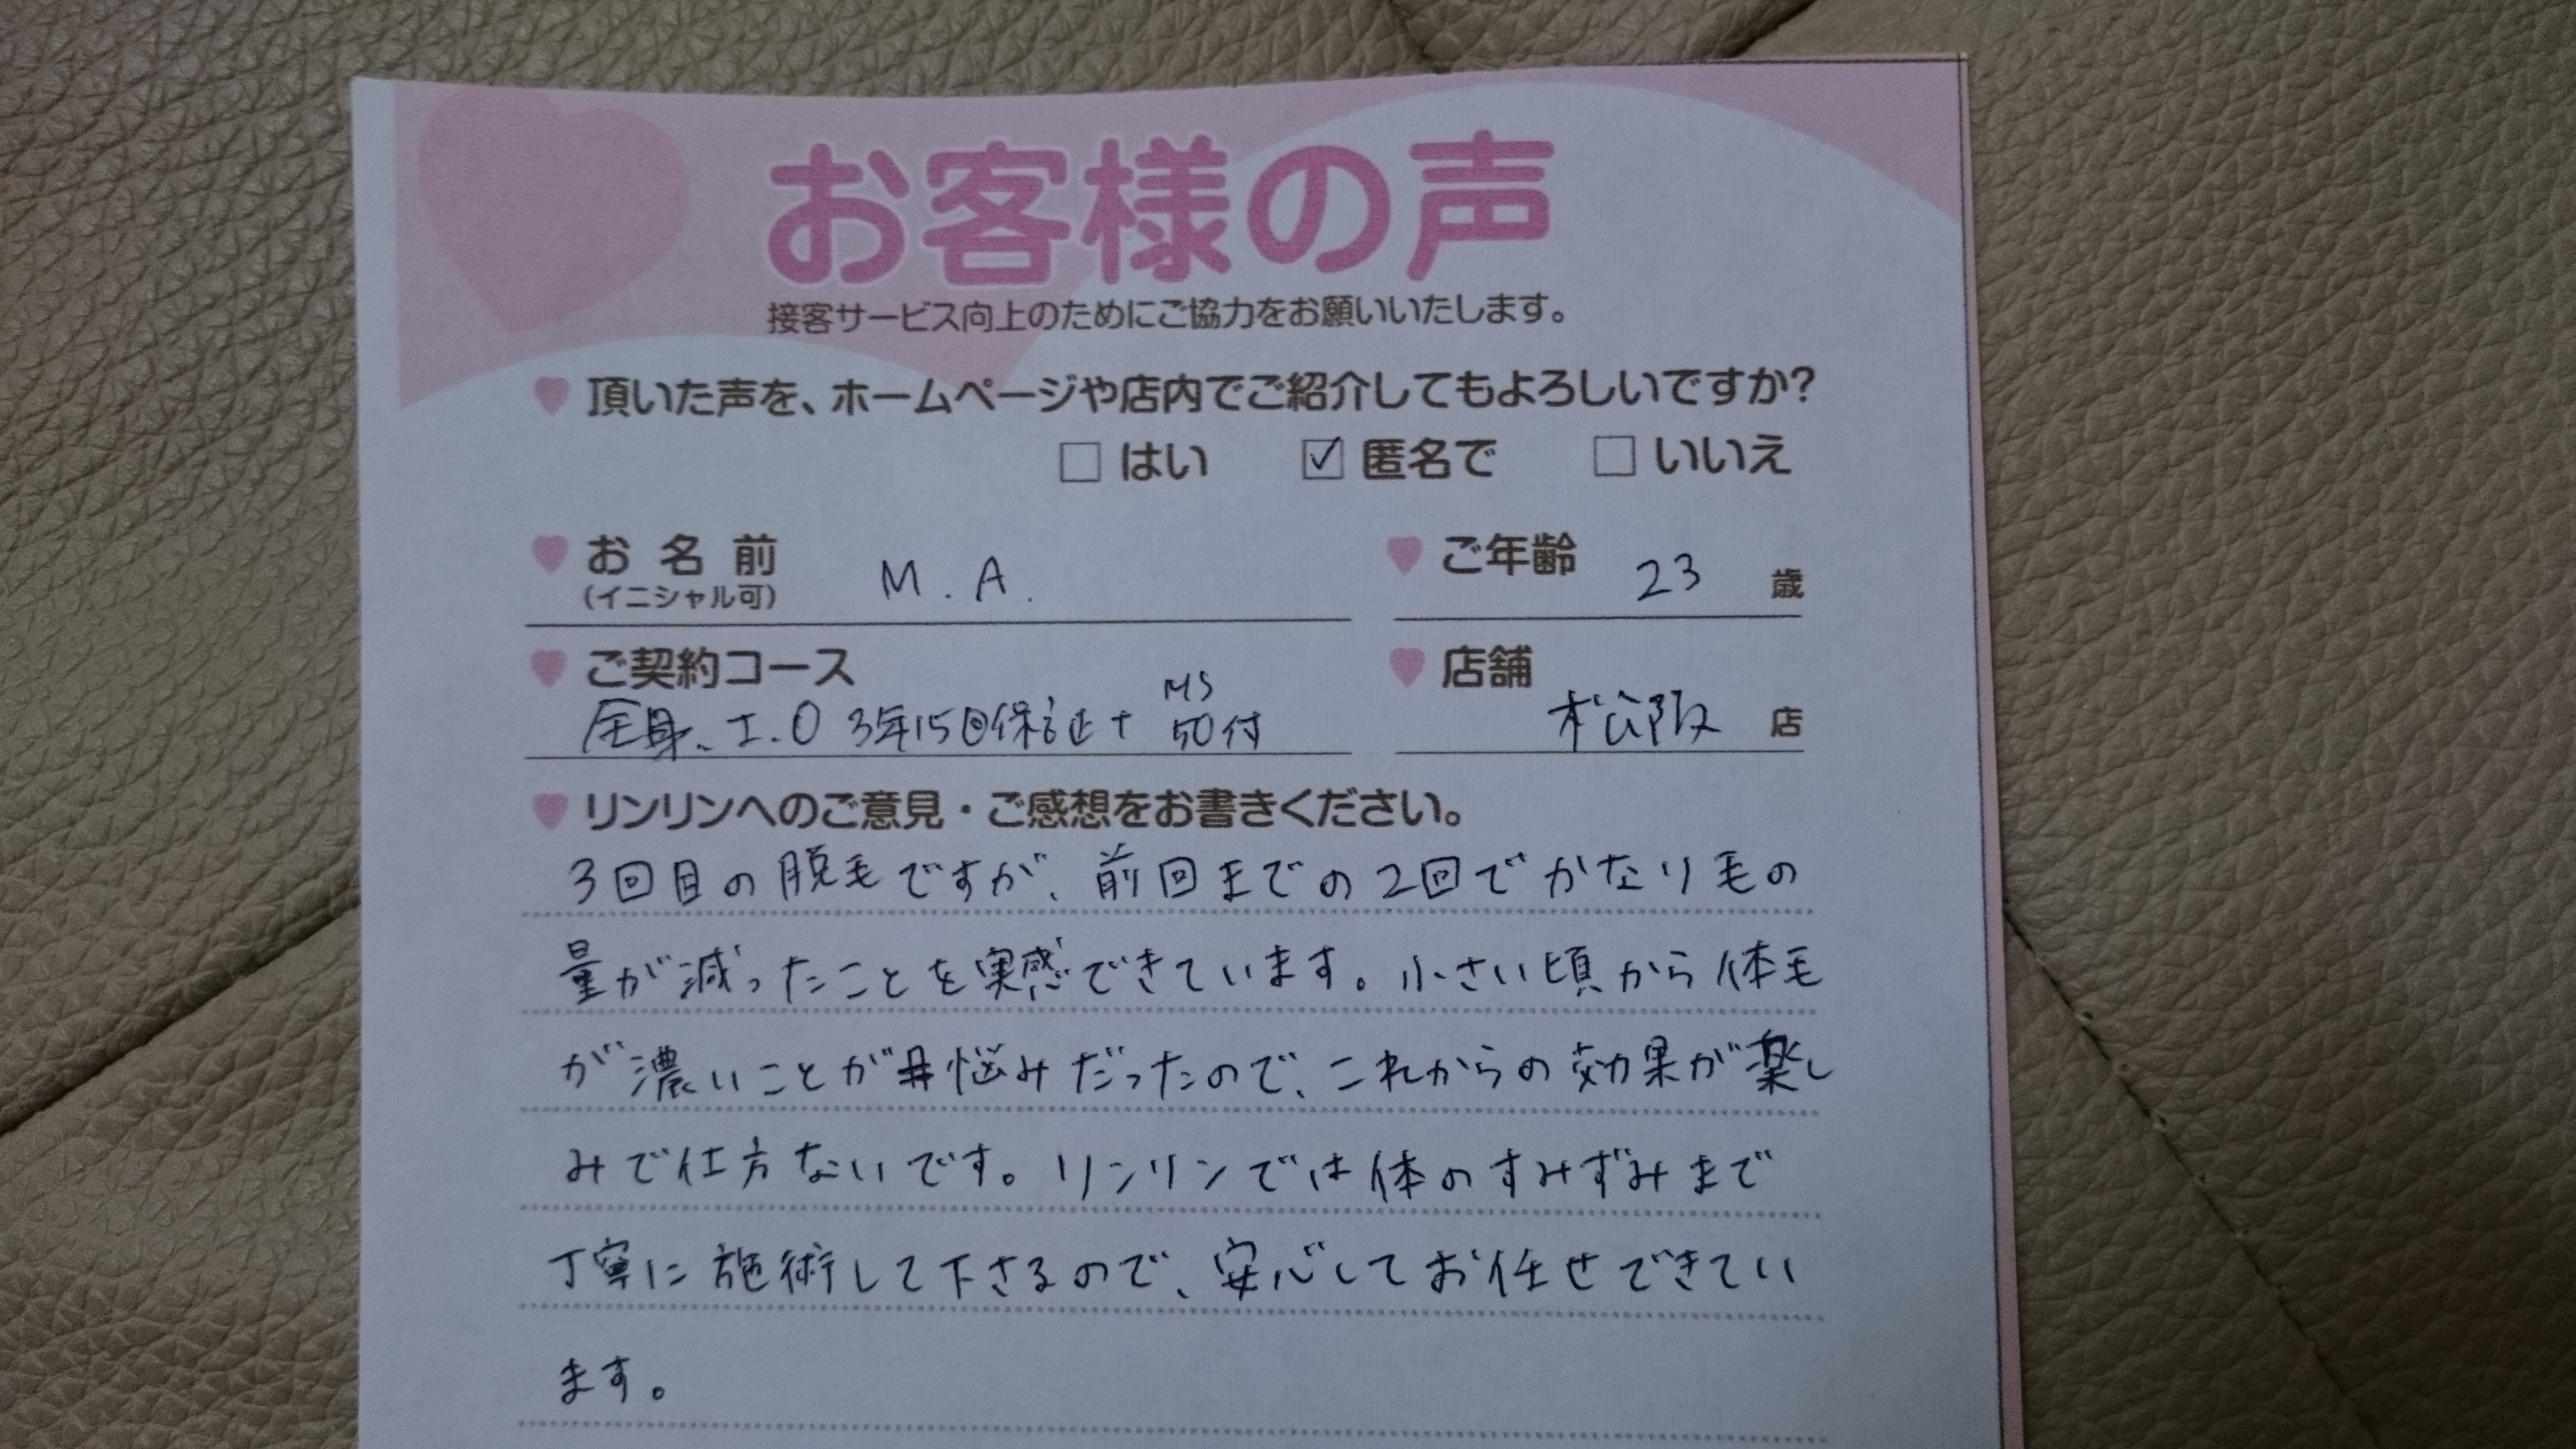 お客様の声
接客サービス向上のためにご協力をお願いいたします。
頂いた声を、ホームページや店内でご紹介してもよろしいですか?
はい 匿名で いいえ
お名前 M.A. ご年齢 23 歳
(イニシャル可)
ご契約コース 店舗
MS
全身、I.O 3年15回保証+ 50付 松阪 店
リンリンへのご意見・ご感想をお書きください。
3回目の脱毛ですが、前回までの2回でかなり毛の
量が減ったことを実感できています。小さい頃から体毛
が濃いことが悩みだったので、これからの効果が楽し
みで仕方ないです。リンリンでは体のすみずみまで
丁寧に施術して下さるので、安心してお任せできてい
ます。